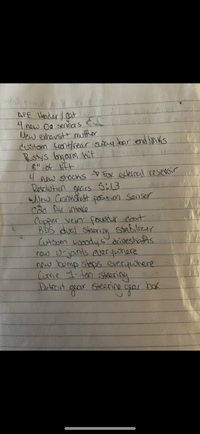 AFE Header / Cat
4 new O2 sensors
New exhaust + muffler
Custom front/rear sway bar endlinks
Rustys longarm kit
8" of lift
4 new shocks → Fox external resevoir
Revolution gears 5:13
New Crankshaft position sensor
Cold Air intake
Copper vein powder coat
dual steering stabilizer
Custom woodys driveshafts
new U-joints everywhere
new bump stops everywhere
Currie 1-ton steering
Detroit gear steering gear box